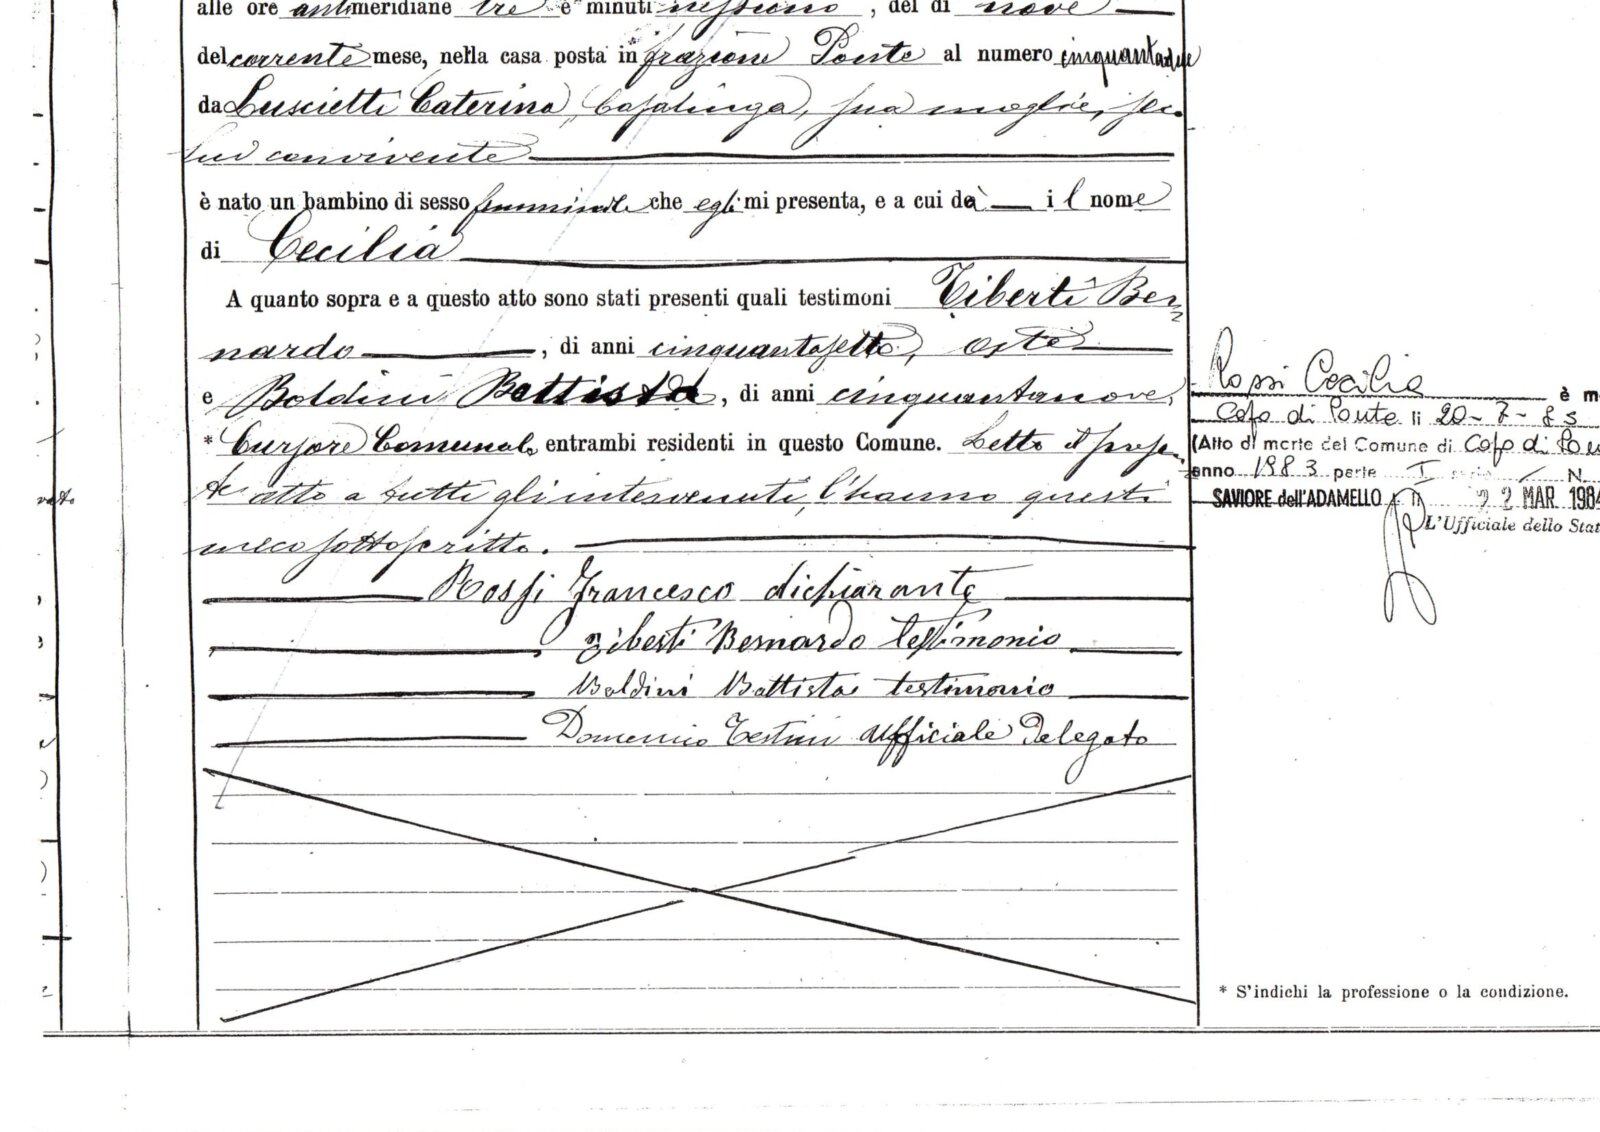 alle ore antimeridiane tre e minuti nessuno, del dì nove
del corrente mese, nella casa posta in frazione Ponte al numero cinquantadue
da Luscietti Caterina, Casalinga, sua moglie, seco
lui convivente
è nato un bambino di sesso femminile che egli mi presenta, e a cui dà il nome
di Cecilia
A quanto sopra e a questo atto sono stati presenti quali testimoni Tiberti Ber
nardo, di anni cinquantasette, oste
e Boldini Battista, di anni cinquantanove,
* Cursore Comunale, entrambi residenti in questo Comune. Letto il presen
te atto a tutti gli intervenuti, l'hanno questi
meco sottoscritto.
Rossi Francesco dichiarante
Tiberti Bernardo testimonio
Boldini Battista testimonio
Domenico Testini ufficiale delegato
Rossi Cecilia
è m
Capo di Ponte li 20-7-83
(Atto di morte del Comune di Capo di Po
anno 1983 parte I serie / N.
SAVIORE dell'ADAMELLO li 22 MAR. 1984
L'Ufficiale dello Stat
* S'indichi la professione o la condizione.